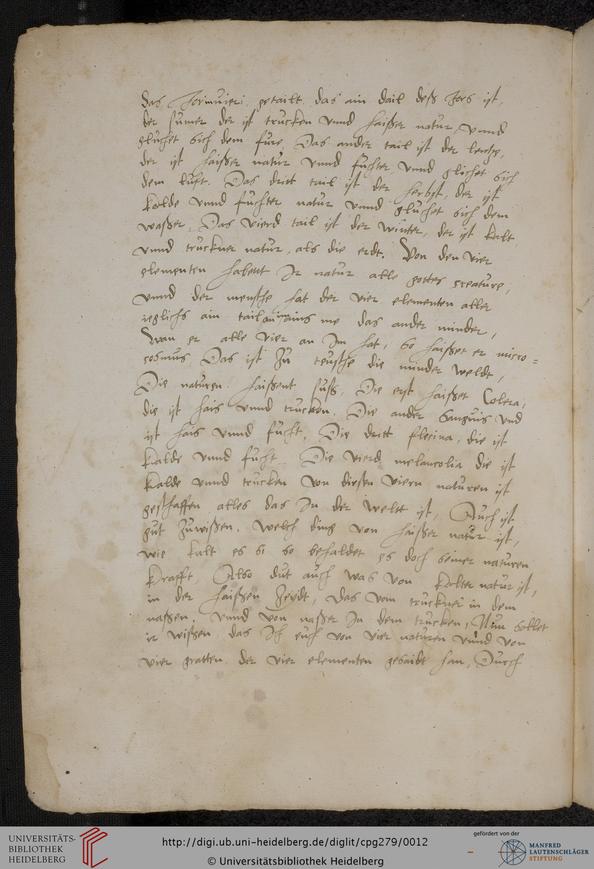 das Jor inn vier getailt. das ain dail deß Jors ist,
der sumer der ist trucken vnnd haißer natur, vnnd
glichet sich dem fure, Das ander tail ist der lentze,
der ist haißer natur vnnd fuchter vnnd glichet sich
dem lufft. Das dritt tail ist der herbst, der ist
kalde vnnd fuchter natur vnnd glichet sich dem
waßer, Das vierd tail ist der winter, der ist kalt
vnnd truckner natur, als die erdt. Von den vier
elementen habent Ir natur alle gottes creature,
vnnd der mensche hat der vier elementen aller
ieglichs ain tail ains me das ander minder,
Wan er alle vier an Im hat, so haißet er micro=
cosmus Das ist zu teusche die minder weldt,
Die naturen haißent suß, Die erst haißet Colera,
die ist hais vnnd trucken, Die ander Sanguis vnd
ist hais vnnd fucht, Die dritt flecma, die ist
kalde vnnd fucht Die vierd melancolia die ist
kalde vnnd trucken von dießen viern naturen ist
geschaffen alles das In der weldt ist, Auch ist
gut zuwißen. welch ding von haißer natur ist,
wie kalt es si so behaldet es doch seiner naturen
krafft, Also dut auch was von kolter natur ist,
in der haißen zeydt, das vom truckner in dem
naßen, vnnd von naßer In dem trucken, Nun sollet
ir wißen, das Ich euch von vier naturen vnnd von
vier gratten der vier elementen gesaidt han, Durch
UNIVERSITÄTS-
BIBLIOTHEK
HEIDELBERG
http://digi.ub.uni-heidelberg.de/diglit/cpg279/0012
© Universitätsbibliothek Heidelberg
gefördert von der
MANFRED
LAUTENSCHLÄGER
STIFTUNG